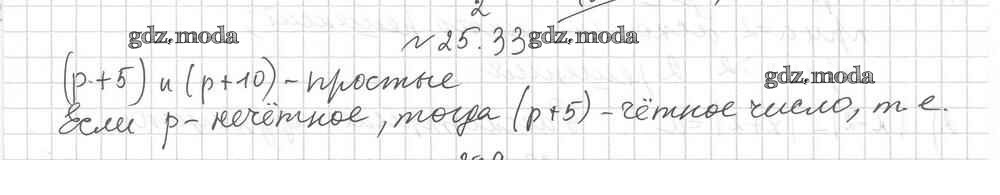 2
gdz.moda
№25.33 gdz.moda
(p+5) и (p+10) - простые
gdz.moda
Если p - нечётное, тогда (p+5) - чётное число, т.е.